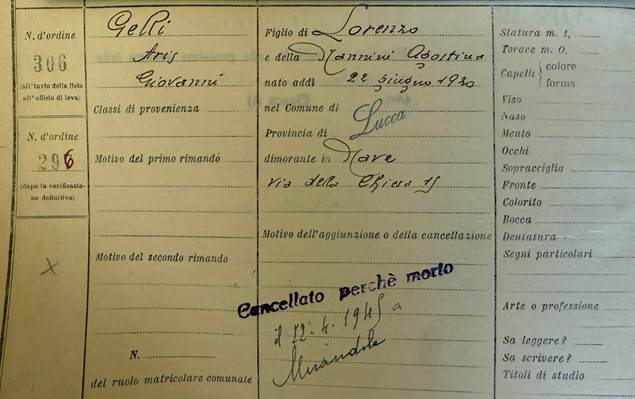 N. d'ordine
306
(all'invio della lista
all'ufficio di leva)
N. d'ordine
296
(dopo la verificazio-
ne definitiva)
Gelli
Aris
Giovanni
Classi di provenienza
Motivo del primo rimando
Motivo del secondo rimando
N.
del ruolo matricolare comunale
Figlio di Lorenzo
e della Nannini Agostina
nato addì 22 giugno 1920
nel Comune di
Provincia di Lucca
dimorante in Nave
via della Chiesa 15
Motivo dell'aggiunzione o della cancellazione
Cancellato perchè morto
il 12-4-1945 a
Mirandola
Statura m. 1,
Torace m. 0,
Capelli { colore
forma
Viso
Naso
Mento
Occhi
Sopracciglia
Fronte
Colorito
Bocca
Dentatura
Segni particolari
Arte o professione
Sa leggere?
Sa scrivere?
Titoli di studio